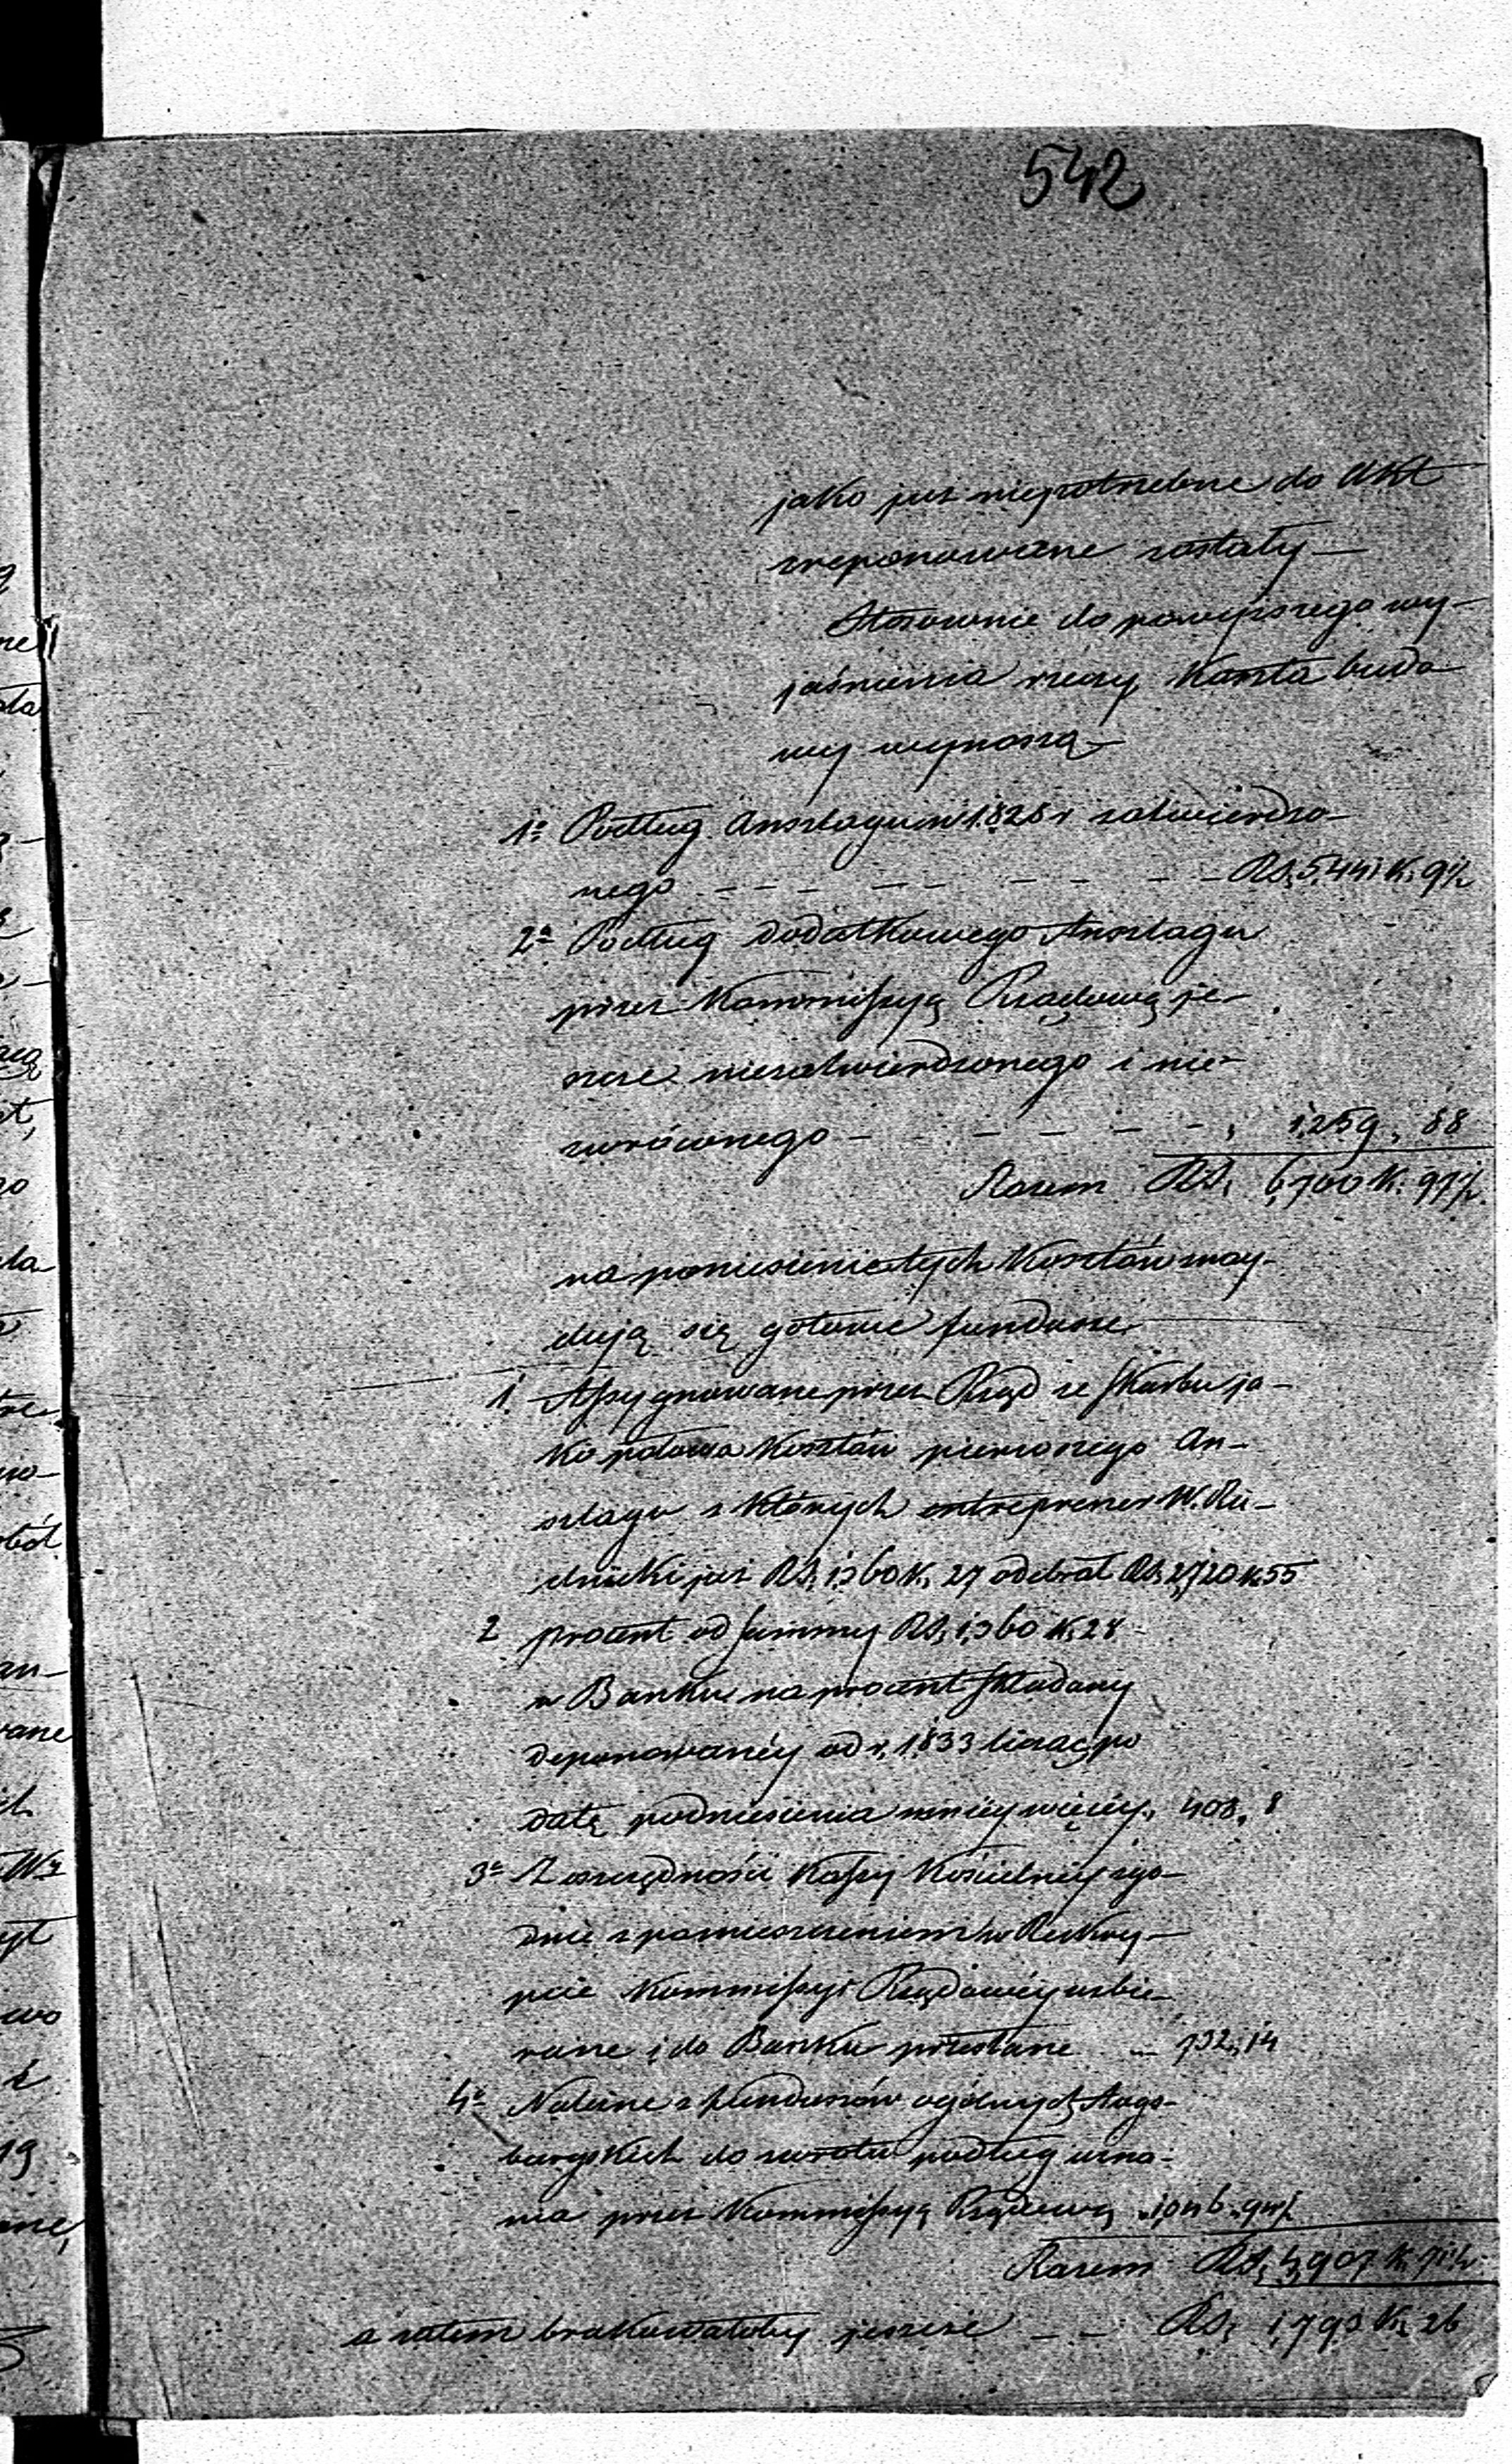 542
jako już niepotrzebne do Akt
zreponowane zostały —
Stosownie do powyższego wy-
jaśnienia rzeczy Koszta budo
wy wynoszą
1º Podług Anszlagu w 1828 r zatwierdzo-
nego — — — — — — — — RS. 5,441 K. 9½
2º Podług dodatkowego Anszlagu
przez Kommissyą Rządową je-
szcze niezatwierdzonego i nie-
zwróconego — — — — — — „ 1,259 „ 88
Razem RS. 6,700 K. 97½
na poniesienie tych Kosztów znay-
dują się gotowe fundusze
1. Assygnowane przez Rząd ze Skarbu ja-
ko połowa Kosztów pierwszego An-
szlagu z których entreprener W. Ru-
dnicki już RS. 1,360 K. 27 odebrał RS. 2,720 K. 55
2 procent od Summy RS. 1,360 K. 28
w Banku na procent Składany
deponowanéy od r. 1833 licząc po
datę podniesienia mniéy więcéy „ 408 „ 8
3º Z oszczędności Kassy Kościelnéy zgo-
dnie z pomieszczeniem w Reskry-
pcie Kommissyi Rządowéy uzbie-
rane i do Banku przesłane — 732 „ 14
4º Należne z funduszów ogólnych Augs-
burgskich do zwrotu podług uzna-
nia przez Kommissyą Rządową
Razem RS. 4,907 K. 71½
a zatem brakowałoby jeszcze — — RS. 1,793 K. 26